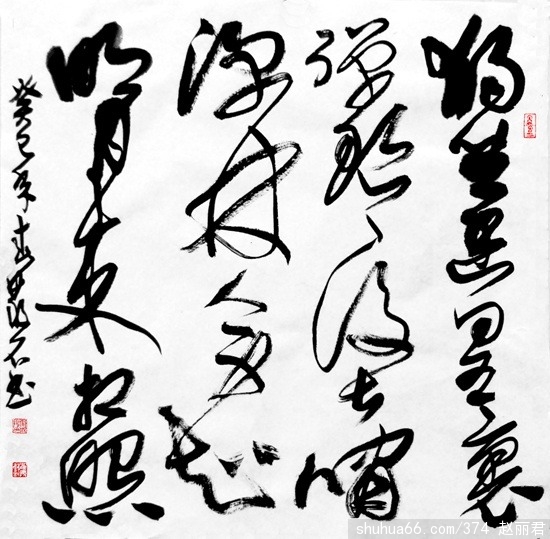 獨坐幽篁裏
彈琴復長嘯
深林人不知
明月来相照
癸巳年
shuhua66.com/374 赵丽君